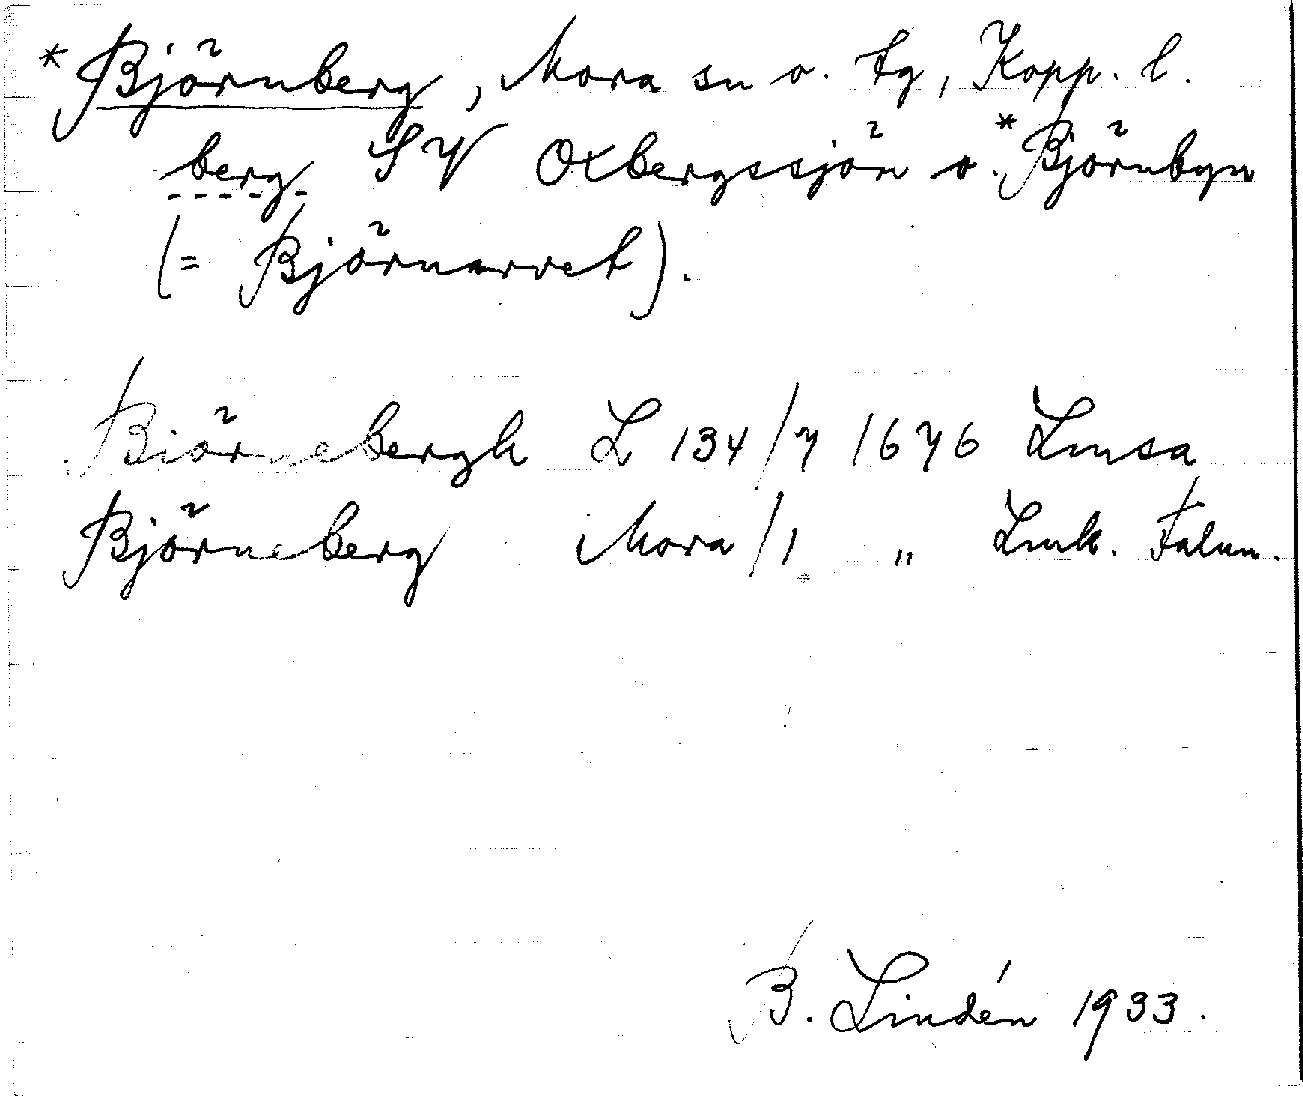 *Björnberg, Mora sn o. tg, Kopp. l.
berg SV Oxbergssjön o. *Björnbyn
(= Björnarvet).
Biörnebergh L 134/7 1676 Lmsa
Björneberg Mora/1 " Lmk. Falun.
B. Lindén 1933.